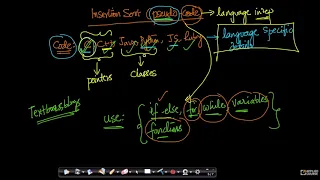 Insertion Sort pseudo code → language indep
Code C, C++, Java, Python, JS, Ruby
language specific details
pointers classes
Textbooks/blogs use: { if-else, for, while, variables
functions }